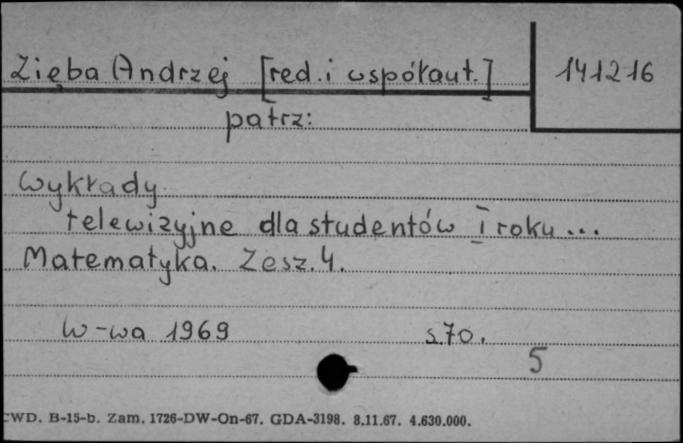 Zięba Andrzej [red. i współaut.] 141216
patrz:
Wykłady
telewizyjne dla studentów I roku...
Matematyka. Zesz. 4.
W-wa 1969 s 70.
5
CWD. B-15-b. Zam. 1726-DW-On-67. GDA-3198. 8.11.67. 4.630.000.